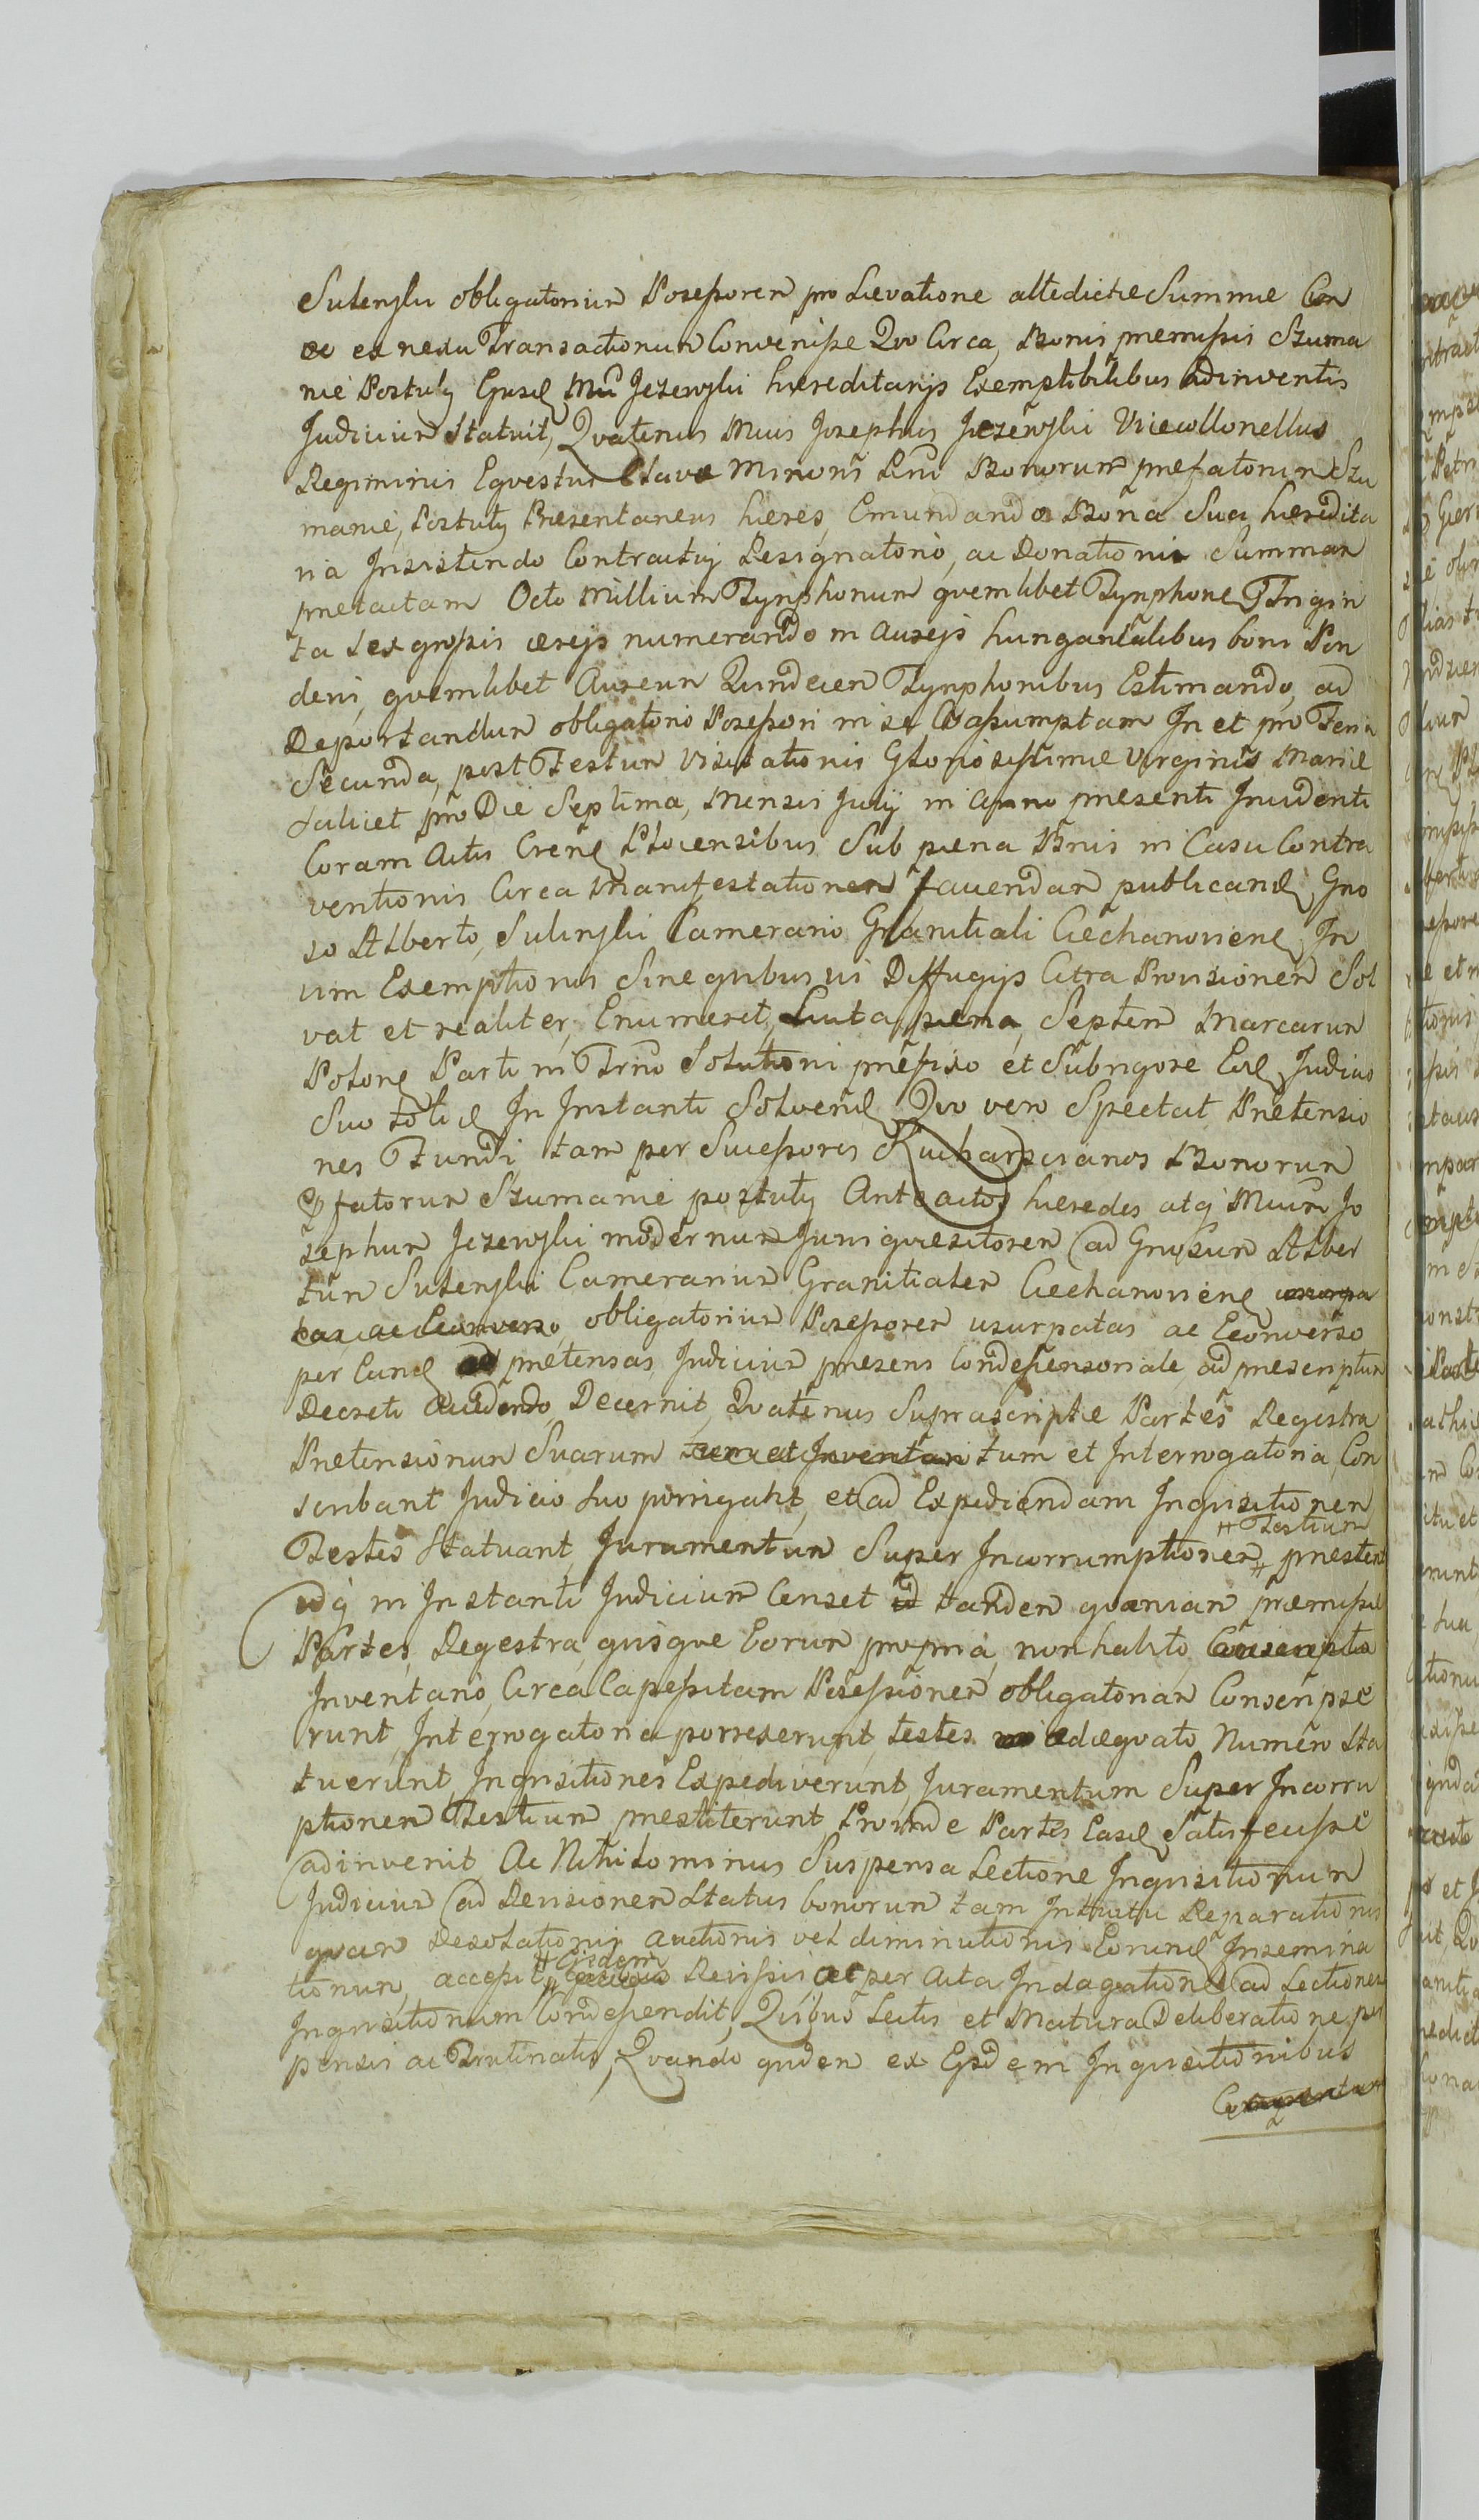 Sulenski obligatorium Possessorem pro Lievatione altedictæ Summæ Con
ac ex nexu Transactionum Convenisse Quo Circa, Bonis premissis Szuma
nie Postuly Ejusd Mci Jezewski hæreditarijs Exemptibilibus adinventis
Judicium Statuit, Quatenus Mcus Josephus Jezewski Vicecollonellus
Regiminis Equestris Clavæ Minoris Bonorum prefatorum Szu
manie, Postuly Præsentaneus hæres, Emundando Bona Sua hæredita
ria Insistendo Contractuj Resignatorio, ac Donationis Summam
pretactam Octo Millium Tynphonum quemlibet Tynphonem Trigin
ta Sex grossis æreis numerando in Aureis hungaricalibus boni Pon
deris, quemlibet Aureum Quindecem Tynphonibus Estimando, ad
Deportandum obligatorio Possessori in se Assumptam In et pro Feria
Secunda, post Festum Visitationis Gloriosissimæ Virginis Mariæ
Scilicet pro Die Septima, Mensis Julij in Anno presenti Incidenti
Coram Actis Plocensibus Sub pæna Bnis in Casu Contra
ventionis Circa Manifestationem favendam publicand Gno
so Alberto, Sulenski Camerario Granitiali Ciechanoviens In
vim Exemptionis Sine quibusvis Diffugijs Citra Provisionem Sol
vat et realiter, Enumeret, Luita pæna, Septem Marcarum
Polon Parti in Trno Solutioni prefixo et Sub rigore Ejusd Judicio
Suo toties In Instanti Solvend Quo vero Spectat Pretensio
nes Fundi, tam per Sucessores Kucharscianos Bonorum
Pfatorum Szumanie postuly Anteactos hæredes atq Mcum Jo
sephum Jezewski modernum Juris quæsitorem ad Gnosum Alber
tum Sulenski Camerarium Granitialem Ciechanoviens usurpa
tas, ac Econverso, obligatorium Possessorem usurpatas ac Econverso
per Eund pretensas, Judicium presens Condescensoriale, ad prescriptum
Decreti Decernit, Quatenus Suprascriptæ Partes Regestra
Pretensionum Suarum tum et Inventari tum et Interrogatoria Con
scribant Judicio Suo porrigant, et ad Expediendam Inquisitionem
Testes Statuant, Juramentum Super Incorrumptionem # prestent
# Testium
idq in Instanti Judicium Censet tandem quoniam præmissæ
Partes, Regestra, quisque Eorum propria, non habito Conscripto
Inventario, Circa Capessitam Possessionem obligatoriam Conscripse
runt, Interrogatoria porrexerunt, testes adæquato Numero Sta
tuerunt, Inquisitiones Expediverunt, Juramentum Super Incorru
ptionem Testium prestiterunt, Proinde Partes Easd Satisfecisse
adinvenit, Ac Nihilominus Suspensa Lectione Inquisitionum
Judicium ad Revisionem Status bonorum tam Intuitu Reparationis
quam Desolationis auctionis vel diminutionis Eorund Insemina
tionum, accessit, # Revisis ac per Acta Indagatione ad Lectionem
# Eisdem
Inquisitionum Condescendit, Quibus Lectis et Matura Deliberatione per
pensis ac Trutinatis, Quando quidem ex Ejsdem Inquisitionibus